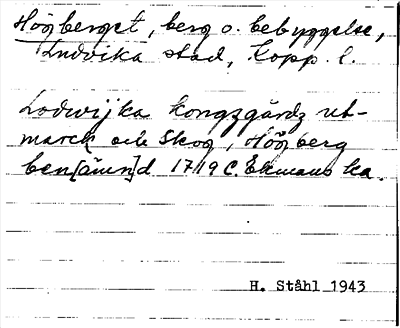 Högberget, berg o. bebyggelse,
Ludvika stad, Kopp. l.
Lodwijka kongzgårdz ut-
marck och Skog, Höögberg
ben[ämn]d 1719 C. Ekmans ka.
H. Ståhl 1943